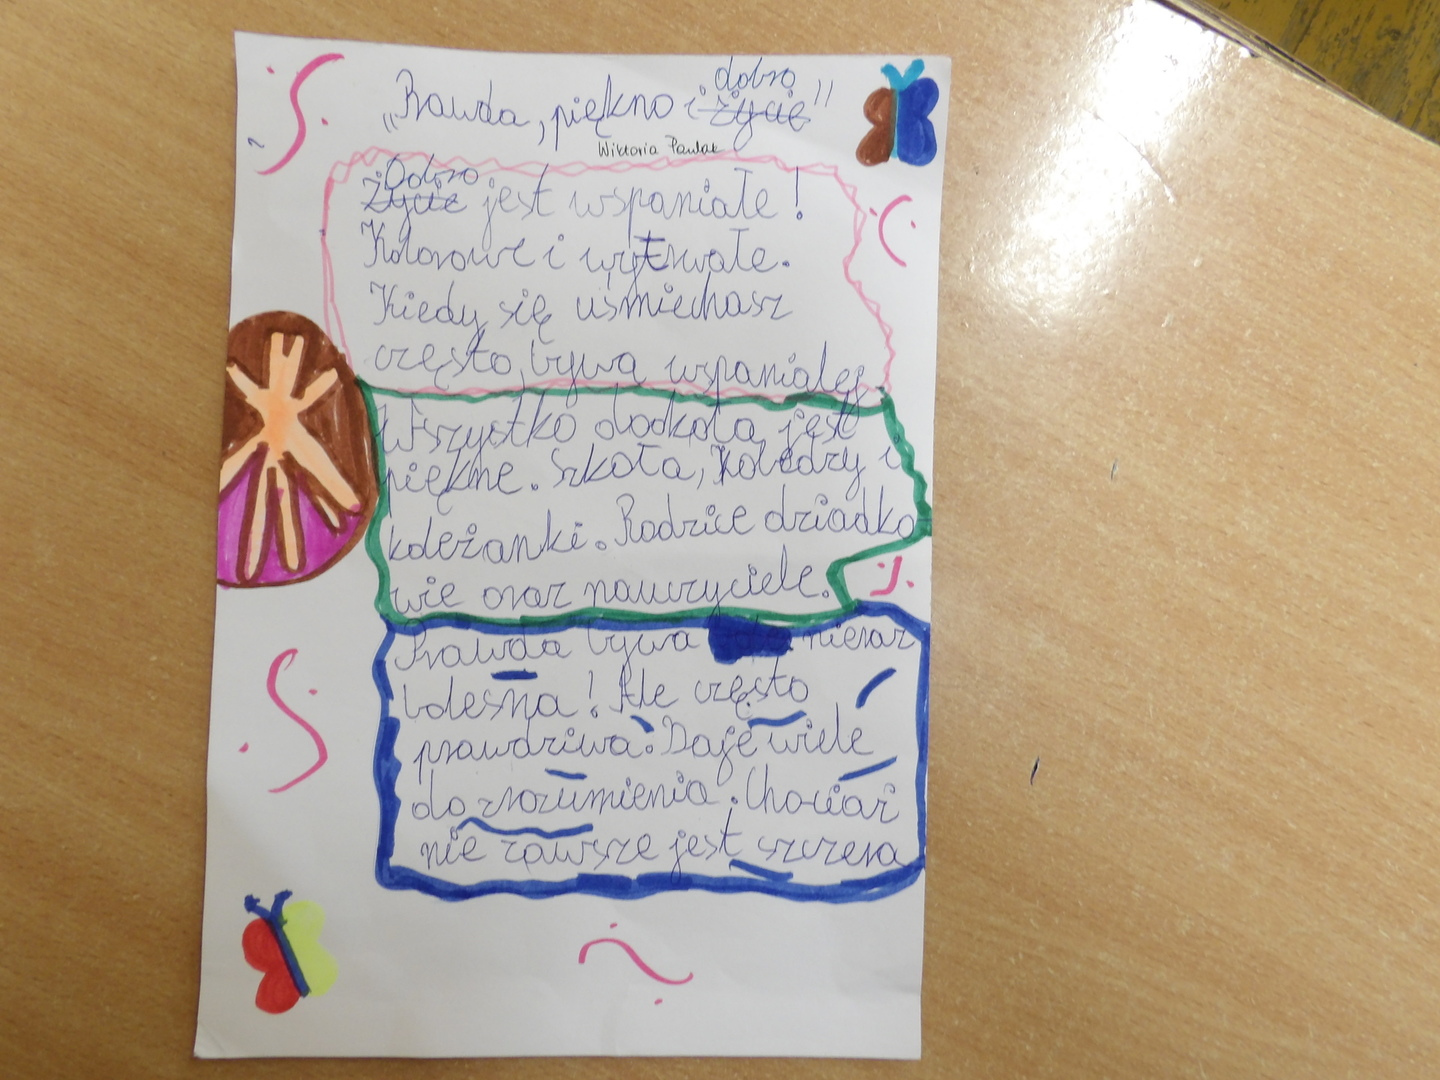 „Prawda, piękno i życie dobro"
Wiktoria Pawlak
Życie Dobro jest wspaniałe!
Kolorowe i wytrwałe.
Kiedy się uśmiechasz
często bywa wspanialej
Wszystko dookoła jest
piękne. Szkoła, Koledzy i
koleżanki. Rodzice dziadko
wie oraz nauczyciele.
Prawda bywa nieraz
bolesna! Ale często
prawdziwa. Daje wiele
do zrozumienia. Chociaż
nie zawsze jest szczera